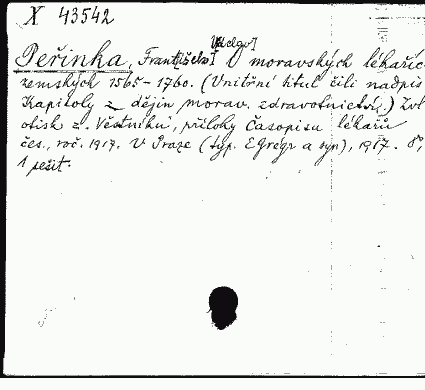 X 43542
Peřinka, František Václav] O moravských lékařích
zemských 1565-1760. (Vnitřní titul čili nadpis
Kapitoly z dějin morav. zdravotnictví.) Zvl.
otisk z. Věstníku, přílohy Časopisu lékařů
čes., roč. 1917. V Praze (typ. E Grégr a syn), 1917. 8°,
1 sešit.